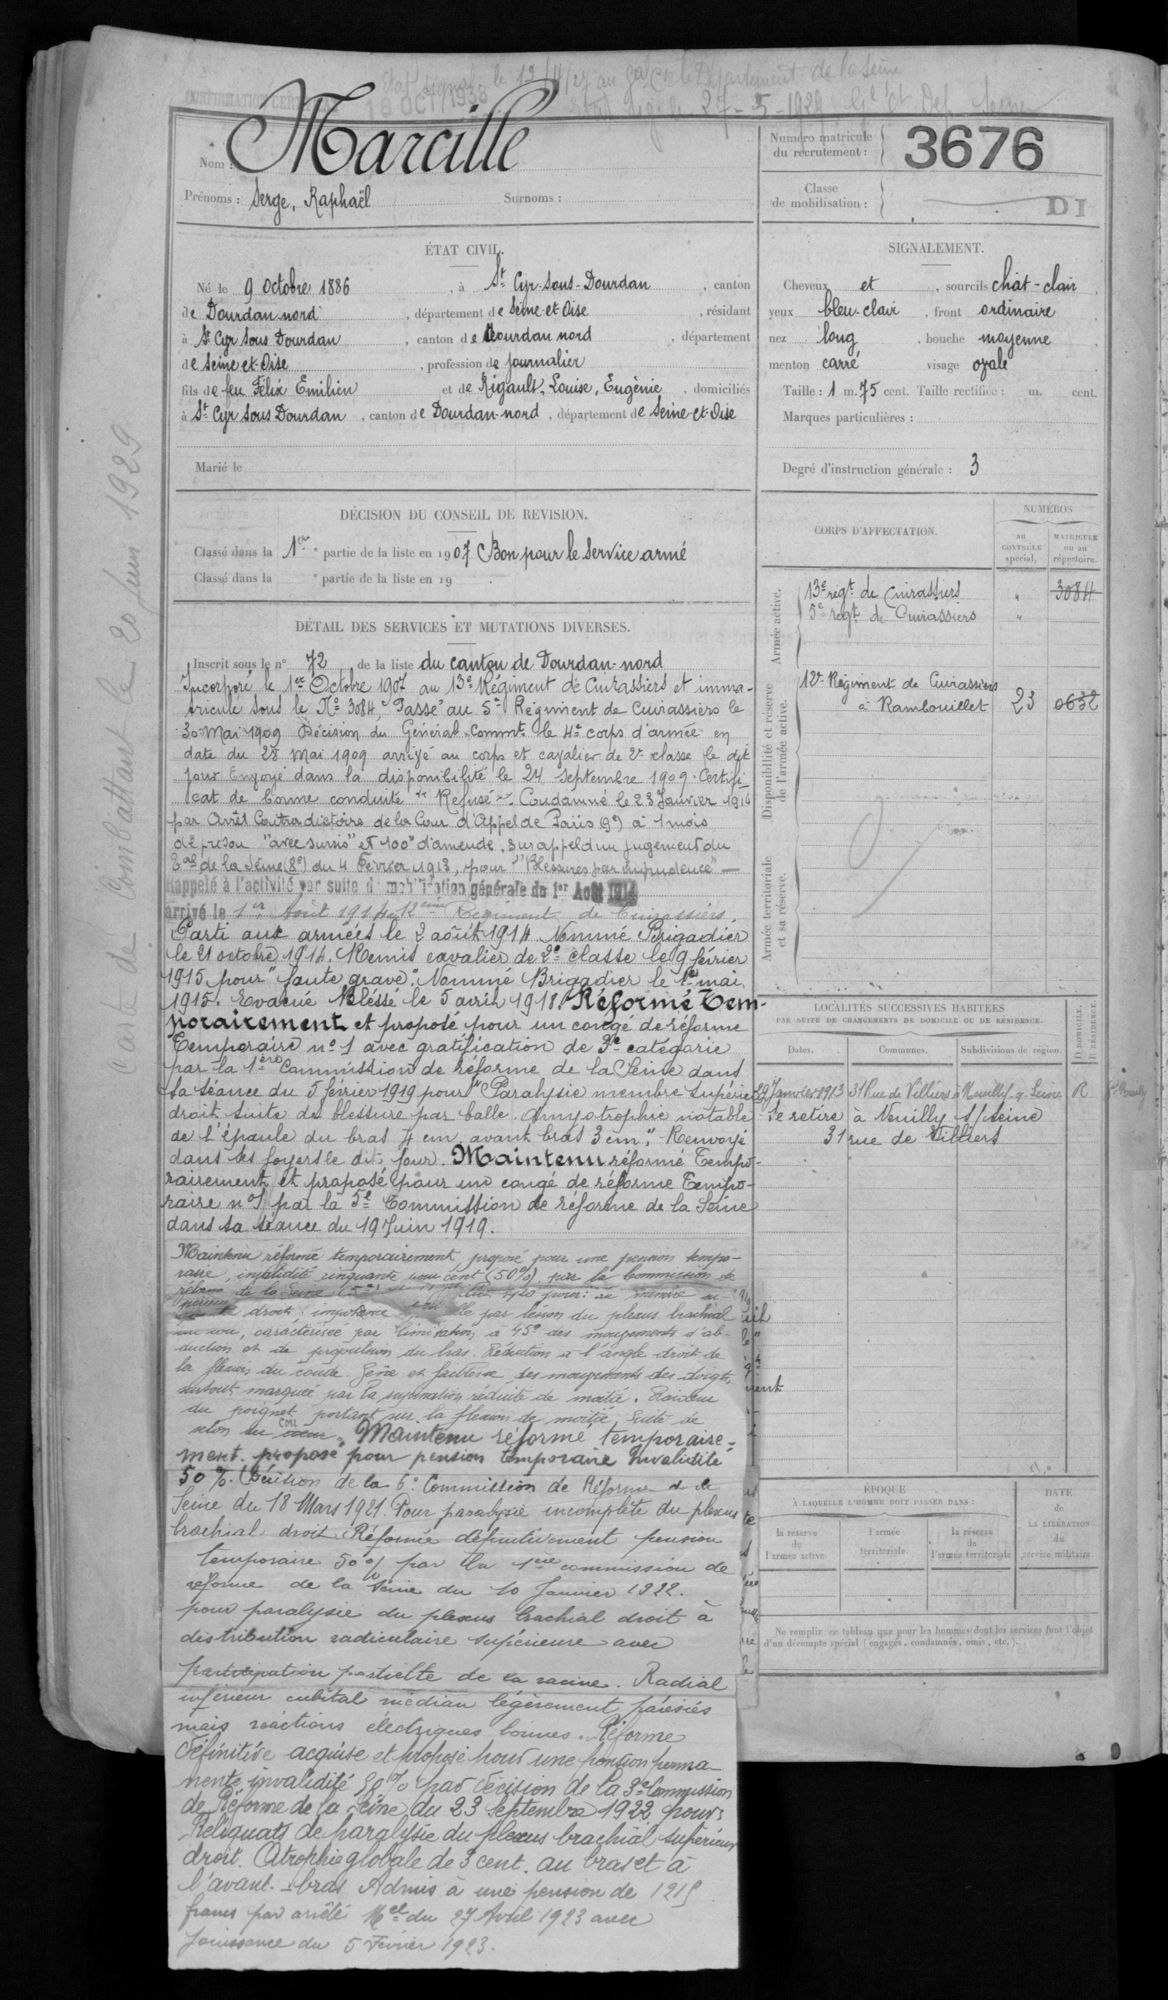 Etat signal. le 12/4/27 au Gal Ct le Département de la Seine
18 OCT 1938
27-5-1929
Nom : Marcille
Prénoms : Serge, Raphaël Surnoms :
Numéro matricule du recrutement : 3676
Classe de mobilisation :
DI
ÉTAT CIVIL.
Né le 9 Octobre 1886, à St Cyr-sous-Dourdan, canton
de Dourdan nord, département de Seine-et-Oise, résidant
à St Cyr sous Dourdan, canton de Dourdan nord, département
de Seine et Oise, profession de journalier
fils de feu Félix Emilien et de Rigault, Louise, Eugènie, domiciliés
à St Cyr sous Dourdan, canton de Dourdan-nord, département de Seine-et-Oise
Marié le
SIGNALEMENT.
Cheveux et, sourcils chât-clair
yeux bleu-clair, front ordinaire
nez long, bouche moyenne
menton carré visage ovale
Taille : 1 m. 75 cent. Taille rectifiée : m. cent.
Marques particulières :
Degré d'instruction générale : 3
DÉCISION DU CONSEIL DE REVISION.
Classé dans la 1re partie de la liste en 1907 Bon pour le service armé
Classé dans la partie de la liste en 19
DÉTAIL DES SERVICES ET MUTATIONS DIVERSES.
Inscrit sous le n° 72 de la liste du canton de Dourdan-nord
Incorporé le 1er Octobre 1907 au 13e Régiment de Cuirassiers et imma-
triculé sous le No 3084. Passé au 5e Régiment de Cuirassiers le
30 Mai 1909 Décision du Général Commt le 4e corps d'armée en
date du 28 Mai 1909 arrivé au corps et cavalier de 2e classe le dit
jour Envoyé dans la disponibilité le 24 septembre 1909. Certifi-
cat de bonne conduite "Refusé". Condamné le 23 Janvier 1914
par Arrêt Contradictoire de la Cour d'Appel de Paris (9e) à 1 mois
de prison "avec sursis" et 100f d'amende, sur appel d'un jugement du
Tral de la Seine (8e) du 4 Février 1913, pour "Blessures par imprudence"
Rappelé à l'activité par suite de mobilisation générale du 1er Août 1914
arrivé le 1er Août 1914 12ème Régiment de Cuirassiers.
Parti aux armées le 2 août 1914 Nommé Brigadier
le 21 octobre 1914. Remis cavalier de 2e classe le 9 février
1915 pour "faute grave". Nommé Brigadier le 1er mai
1915. Evacué Bléssé le 5 avril 1918. Réformé Tem-
porairement et proposé pour un congé de réforme
Temporaire no 1 avec gratification de 3e catégorie
par la 1ère Commission de réforme de la Seine dans
sa séance du 5 février 1919 pour "Paralysie membre supérieur
droit suite de blessure par balle. Amyotrophie notable
de l'épaule du bras 4 cm, avant bras 3 cm". Renvoyé
dans ses foyers le dit jour. Maintenu réformé Tempo-
rairement et proposé pour un congé de réforme Tempo-
raire no 1 par la 5e Commission de réforme de la Seine
dans sa séance du 19 Juin 1919.
Maintenu réformé temporairement, proposé pour une pension tempo-
raire, invalidité cinquante pour cent (50%) par la Commission de
réforme de la Seine
droit : impotence par lésion du plexus brachial
caractérisée par limitation à 45° des mouvements d'ab-
duction et de propulsion du bras. Réduction à l'angle droit de
la flexion du coude. Gêne et faiblesse des mouvements des doigts
surtout marquée par la supination réduite de moitié. Raideur
du poignet portant sur la flexion de moitié. Suite de
Maintenu réformé temporaire-
ment. proposé pour pension temporaire Invalidité
50 %. Décision de la 6e Commission de Réforme de la
Seine du 18 Mars 1921. Pour paralysie incomplète du plexus
brachial droit. Réformé définitivement pension
temporaire 50 % par la 1ère commission de
réforme de la Seine du 10 Janvier 1922.
pour paralysie du plexus brachial droit à
distribution radiculaire supérieure avec
participation partielle de la racine. Radial
inférieur cubital médian légèrement parésiés
mais réactions électriques bonnes. Réforme
définitive acquise et proposé pour une pension perma-
nente invalidité 50% par décision de la 3e Commission
de Réforme de la Seine du 23 septembre 1922 pour
Reliquats de paralysie du plexus brachial supérieur
droit. Atrophie globale de 3 cent. au bras et à
l'avant-bras Admis à une pension de 1215
francs par arrêté Mel du 27 Avril 1923 avec
jouissance du 5 Février 1923.
CORPS D'AFFECTATION.
NUMÉROS
au CONTROLE spécial.
MATRICULE ou au répertoire.
Armée active.
13e régt de Cuirassiers " 3084
5e régt de Cuirassiers "
Disponibilité et réserve de l'armée active.
12e Régiment de Cuirassiers
à Rambouillet 23 0632
Armée territoriale et sa réserve.
LOCALITÉS SUCCESSIVES HABITÉES
PAR SUITE DE CHANGEMENTS DE DOMICILE OU DE RÉSIDENCE.
Dates. Communes. Subdivisions de région. D. DOMICILE. R. RÉSIDENCE.
29 Janvier 1913 31 Rue de Villiers à Neuilly s. Seine R
Se retire à Neuilly s/seine
31 rue de Villiers
ÉPOQUE
À LAQUELLE L'HOMME DOIT PASSER DANS :
la réserve de l'armée active
l'armée territoriale
la réserve de l'armée territoriale
DATE de LA LIBÉRATION du service militaire
Ne remplir ce tableau que pour les hommes dont les services font l'objet
d'un décompte spécial (engagés, condamnés, omis, etc.).
Carte de Combattant le 20 juin 1929